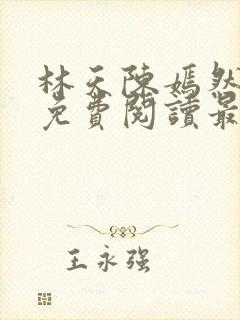 林天陈嫣然
免費閱讀最
王永强